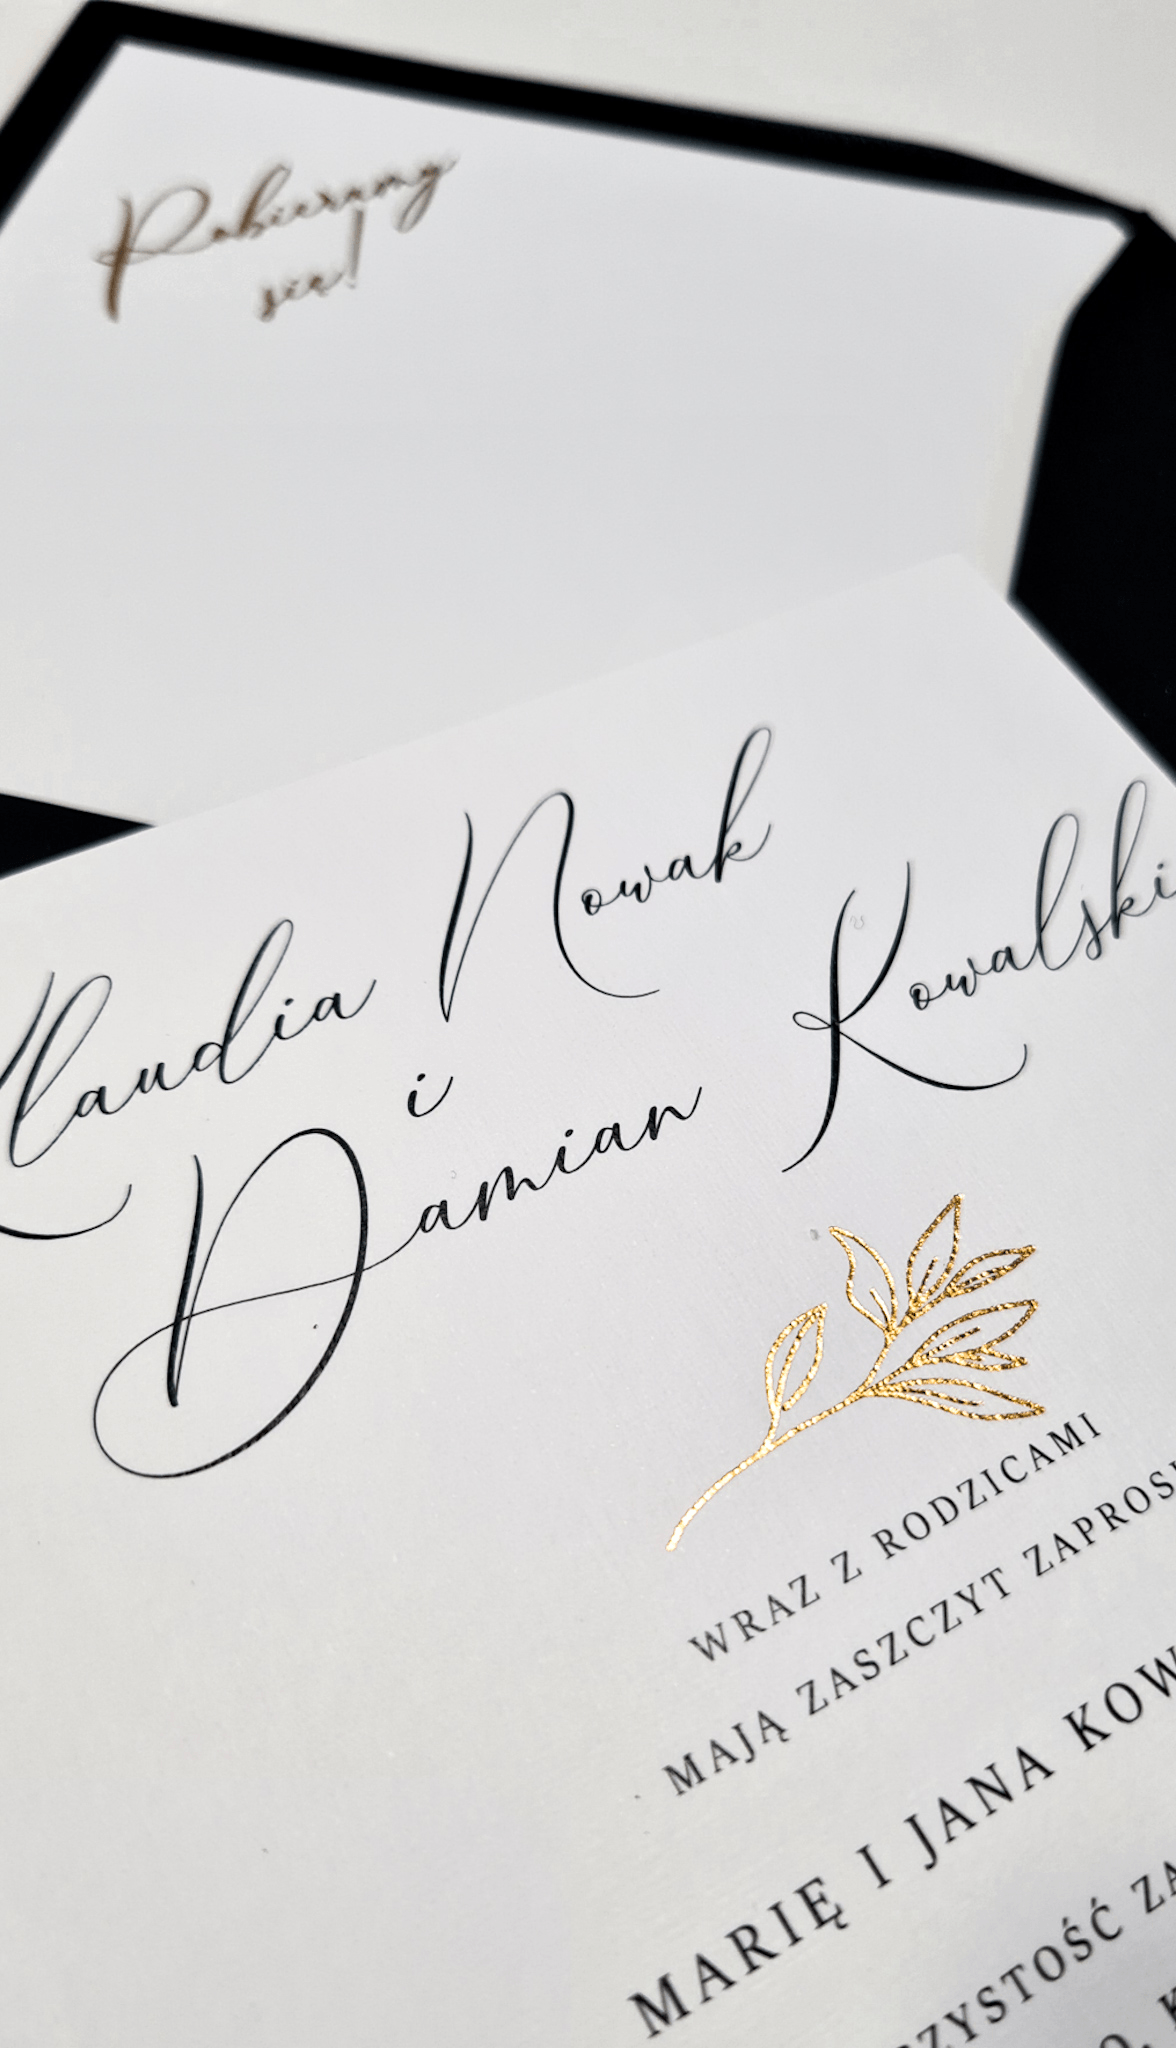 Pobieramy
się!
Klaudia Nowak
i
Damian Kowalski
WRAZ Z RODZICAMI
MAJĄ ZASZCZYT
MARIĘ I JANA